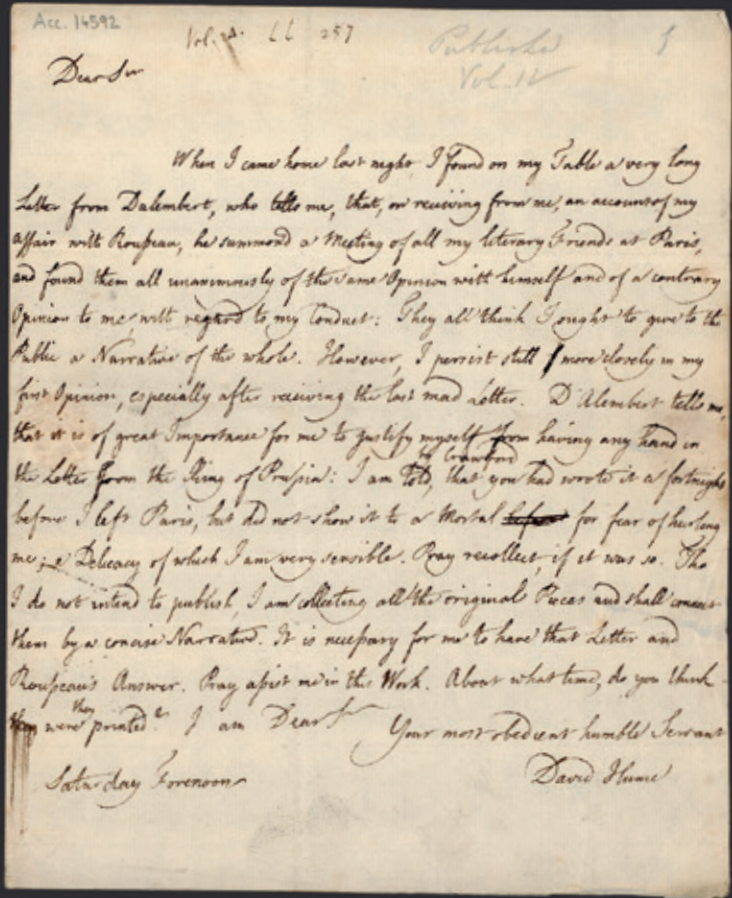 Acc. 14592
Vol. 4. LL 257
Publishd
Vol. IV
Dear Sir
When I came home last night, I found on my Table a very long
Letter from Dalembert, who tells me, that, on receiving from me, an account of my
affair with Rousseau, he summond a Meeting of all my literary Friends at Paris,
and found them all unanimously of the same Opinion with himself and of a contrary
Opinion to me, with regard to my Conduct: They all think I ought to give to the
Public a Narrative of the whole. However, I persist still more closely in my
first Opinion, especially after receiving the last mad Letter. D'Alembert tells me,
that it is of great Importance for me to justify myself from having any hand in
by Crawford
the Letter from the King of Prussia: I am told, that you had wrote it a fortnight
before I left Paris, but did not show it to a Mortal before for fear of hurting
me; a Delicacy of which I am very sensible. Pray recollect, if it was so. Tho
I do not intend to publish, I am collecting all the original Pieces and shall connect
them by a concise Narrative. It is necessary for me to have that Letter and
Rousseau's Answer. Pray assist me in this Work. About what time, do you think
they
were printed? I am Dear Sir
Your most obedient humble Servant
Saturday Forenoon
David Hume